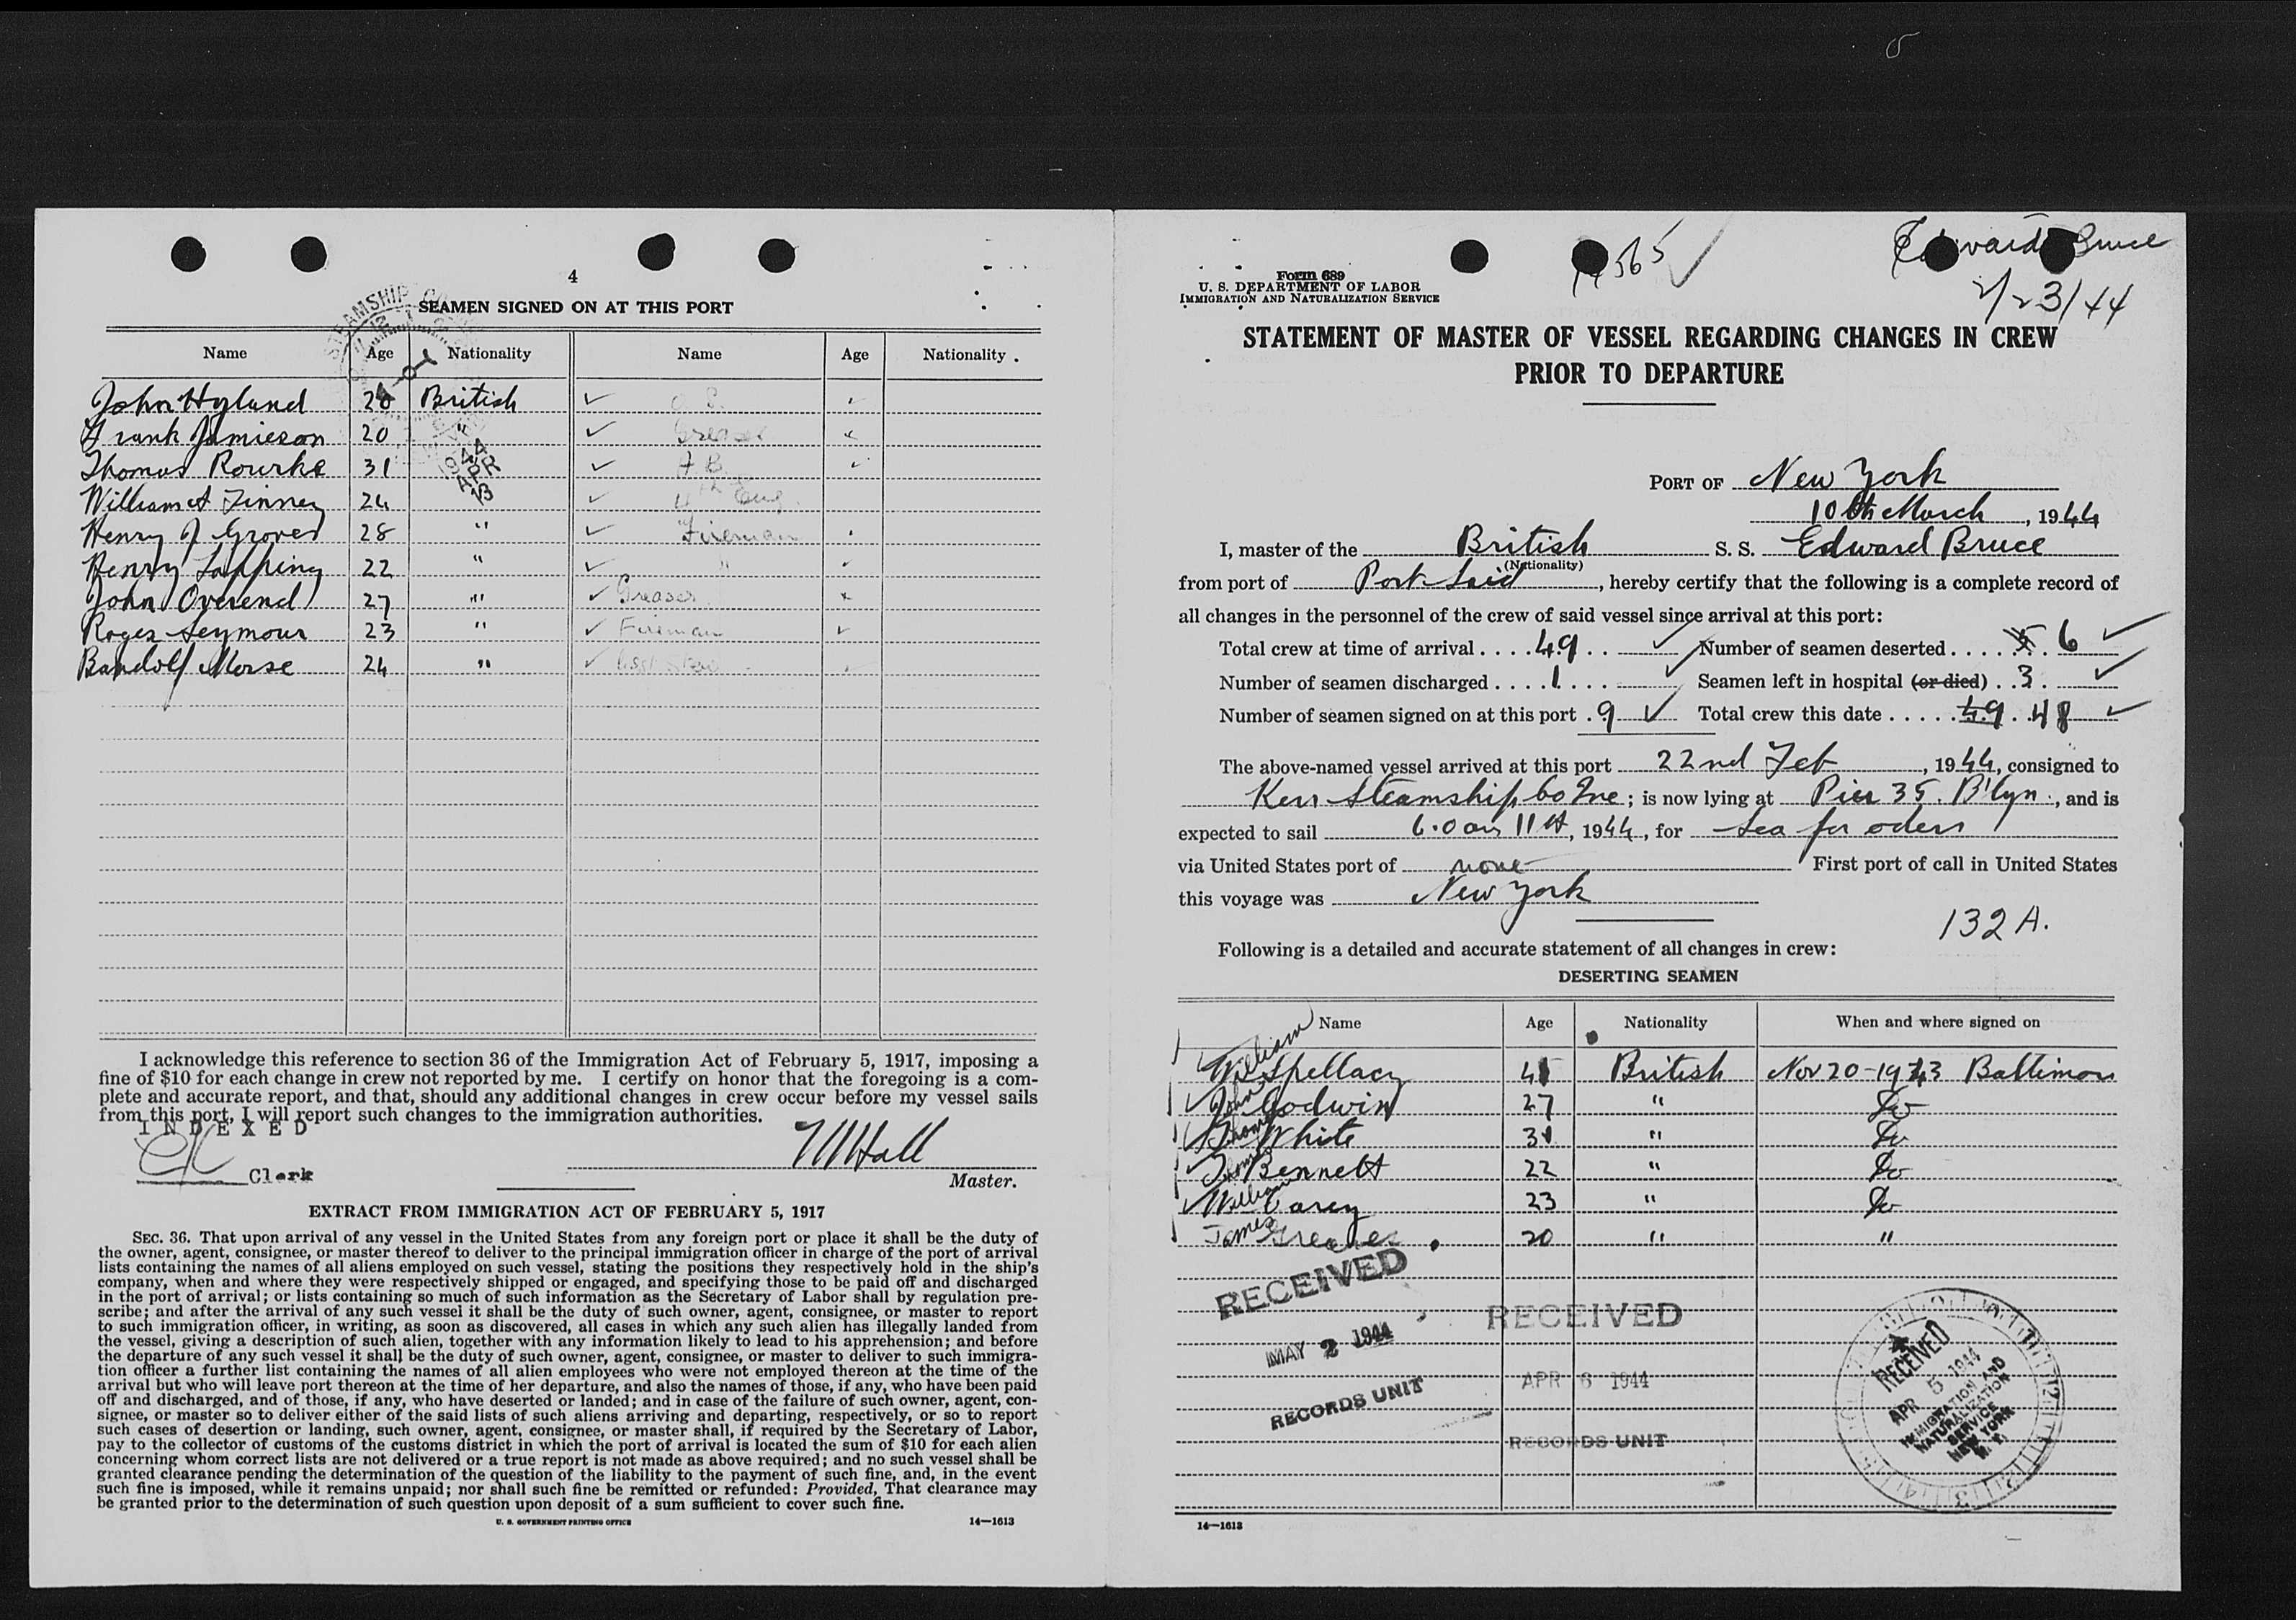 4
SEAMEN SIGNED ON AT THIS PORT
Name Age Nationality Name Age Nationality
John Hyland 28 British
Frank Jamieson 20 " Greaser
Thomas Rourke 31 A.B.
William A Finney 24 4th Eng.
Henry J Groves 28 " Fireman
Henry Topping 22 " "
John Overend 27 " Greaser
Roger Seymour 23 " Fireman
Bandolf Morse 24 "
STEAMSHIP
1944
APR
13
I acknowledge this reference to section 36 of the Immigration Act of February 5, 1917, imposing a
fine of $10 for each change in crew not reported by me. I certify on honor that the foregoing is a com-
plete and accurate report, and that, should any additional changes in crew occur before my vessel sails
from this port, I will report such changes to the immigration authorities.
INDEXED
Clerk
Hall
Master.
EXTRACT FROM IMMIGRATION ACT OF FEBRUARY 5, 1917
SEC. 36. That upon arrival of any vessel in the United States from any foreign port or place it shall be the duty of
the owner, agent, consignee, or master thereof to deliver to the principal immigration officer in charge of the port of arrival
lists containing the names of all aliens employed on such vessel, stating the positions they respectively hold in the ship's
company, when and where they were respectively shipped or engaged, and specifying those to be paid off and discharged
in the port of arrival; or lists containing so much of such information as the Secretary of Labor shall by regulation pre-
scribe; and after the arrival of any such vessel it shall be the duty of such owner, agent, consignee, or master to report
to such immigration officer, in writing, as soon as discovered, all cases in which any such alien has illegally landed from
the vessel, giving a description of such alien, together with any information likely to lead to his apprehension; and before
the departure of any such vessel it shall be the duty of such owner, agent, consignee, or master to deliver to such immigra-
tion officer a further list containing the names of all alien employees who were not employed thereon at the time of the
arrival but who will leave port thereon at the time of her departure, and also the names of those, if any, who have been paid
off and discharged, and of those, if any, who have deserted or landed; and in case of the failure of such owner, agent, con-
signee, or master so to deliver either of the said lists of such aliens arriving and departing, respectively, or so to report
such cases of desertion or landing, such owner, agent, consignee, or master shall, if required by the Secretary of Labor,
pay to the collector of customs of the customs district in which the port of arrival is located the sum of $10 for each alien
concerning whom correct lists are not delivered or a true report is not made as above required; and no such vessel shall be
granted clearance pending the determination of the question of the liability to the payment of such fine, and, in the event
such fine is imposed, while it remains unpaid; nor shall such fine be remitted or refunded: Provided, That clearance may
be granted prior to the determination of such question upon deposit of a sum sufficient to cover such fine.
U. S. GOVERNMENT PRINTING OFFICE 14—1613
Edward Bruce
2/23/44
Form 689
U. S. DEPARTMENT OF LABOR
IMMIGRATION AND NATURALIZATION SERVICE
STATEMENT OF MASTER OF VESSEL REGARDING CHANGES IN CREW
PRIOR TO DEPARTURE
PORT OF New York
10th March, 1944
I, master of the British S. S. Edward Bruce
(Nationality)
from port of Port Said, hereby certify that the following is a complete record of
all changes in the personnel of the crew of said vessel since arrival at this port:
Total crew at time of arrival .... 49 Number of seamen deserted ..... 5 6
Number of seamen discharged .... 1 .... Seamen left in hospital (or died) .. 3
Number of seamen signed on at this port . 9 Total crew this date ..... 49 48
The above-named vessel arrived at this port 22nd Feb, 1944, consigned to
Kerr Steamship Co Inc; is now lying at Pier 35. B'lyn., and is
expected to sail 6.0 am 11th, 1944, for Sea for oders
via United States port of none First port of call in United States
this voyage was New York
132 A.
Following is a detailed and accurate statement of all changes in crew:
DESERTING SEAMEN
Name Age Nationality When and where signed on
William Spellacy 41 British Nov 20-1943 Baltimore
John Godwin 27 " Do
Thomas White 31 " Do
Thomas Bennett 22 " Do
William Carey 23 " Do
James Greaves 20 " "
RECEIVED
MAY 2 1944
RECORDS UNIT
RECEIVED
APR 6 1944
RECORDS UNIT
RECEIVED
APR 5 1944
IMMIGRATION AND
NATURALIZATION
SERVICE
NEW YORK
N. Y.
14—1613